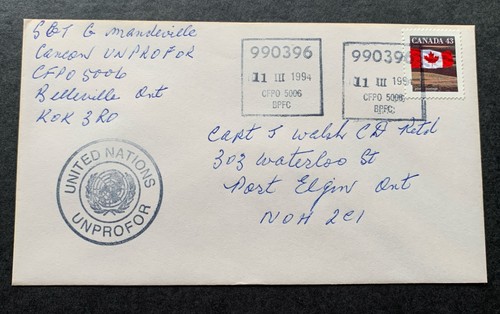 SGT G Mandeville
Cancon UNPROFOR
CFPO 5006
Belleville Ont
K0K 3R0
990396
11 III 1994
CFPO 5006
BPFC
990396
11 III 1994
CFPO 5006
BPFC
CANADA 43
Capt J Walsh CD Retd
303 Waterloo St
Port Elgin Ont
N0H 2C1
UNITED NATIONS
UNPROFOR